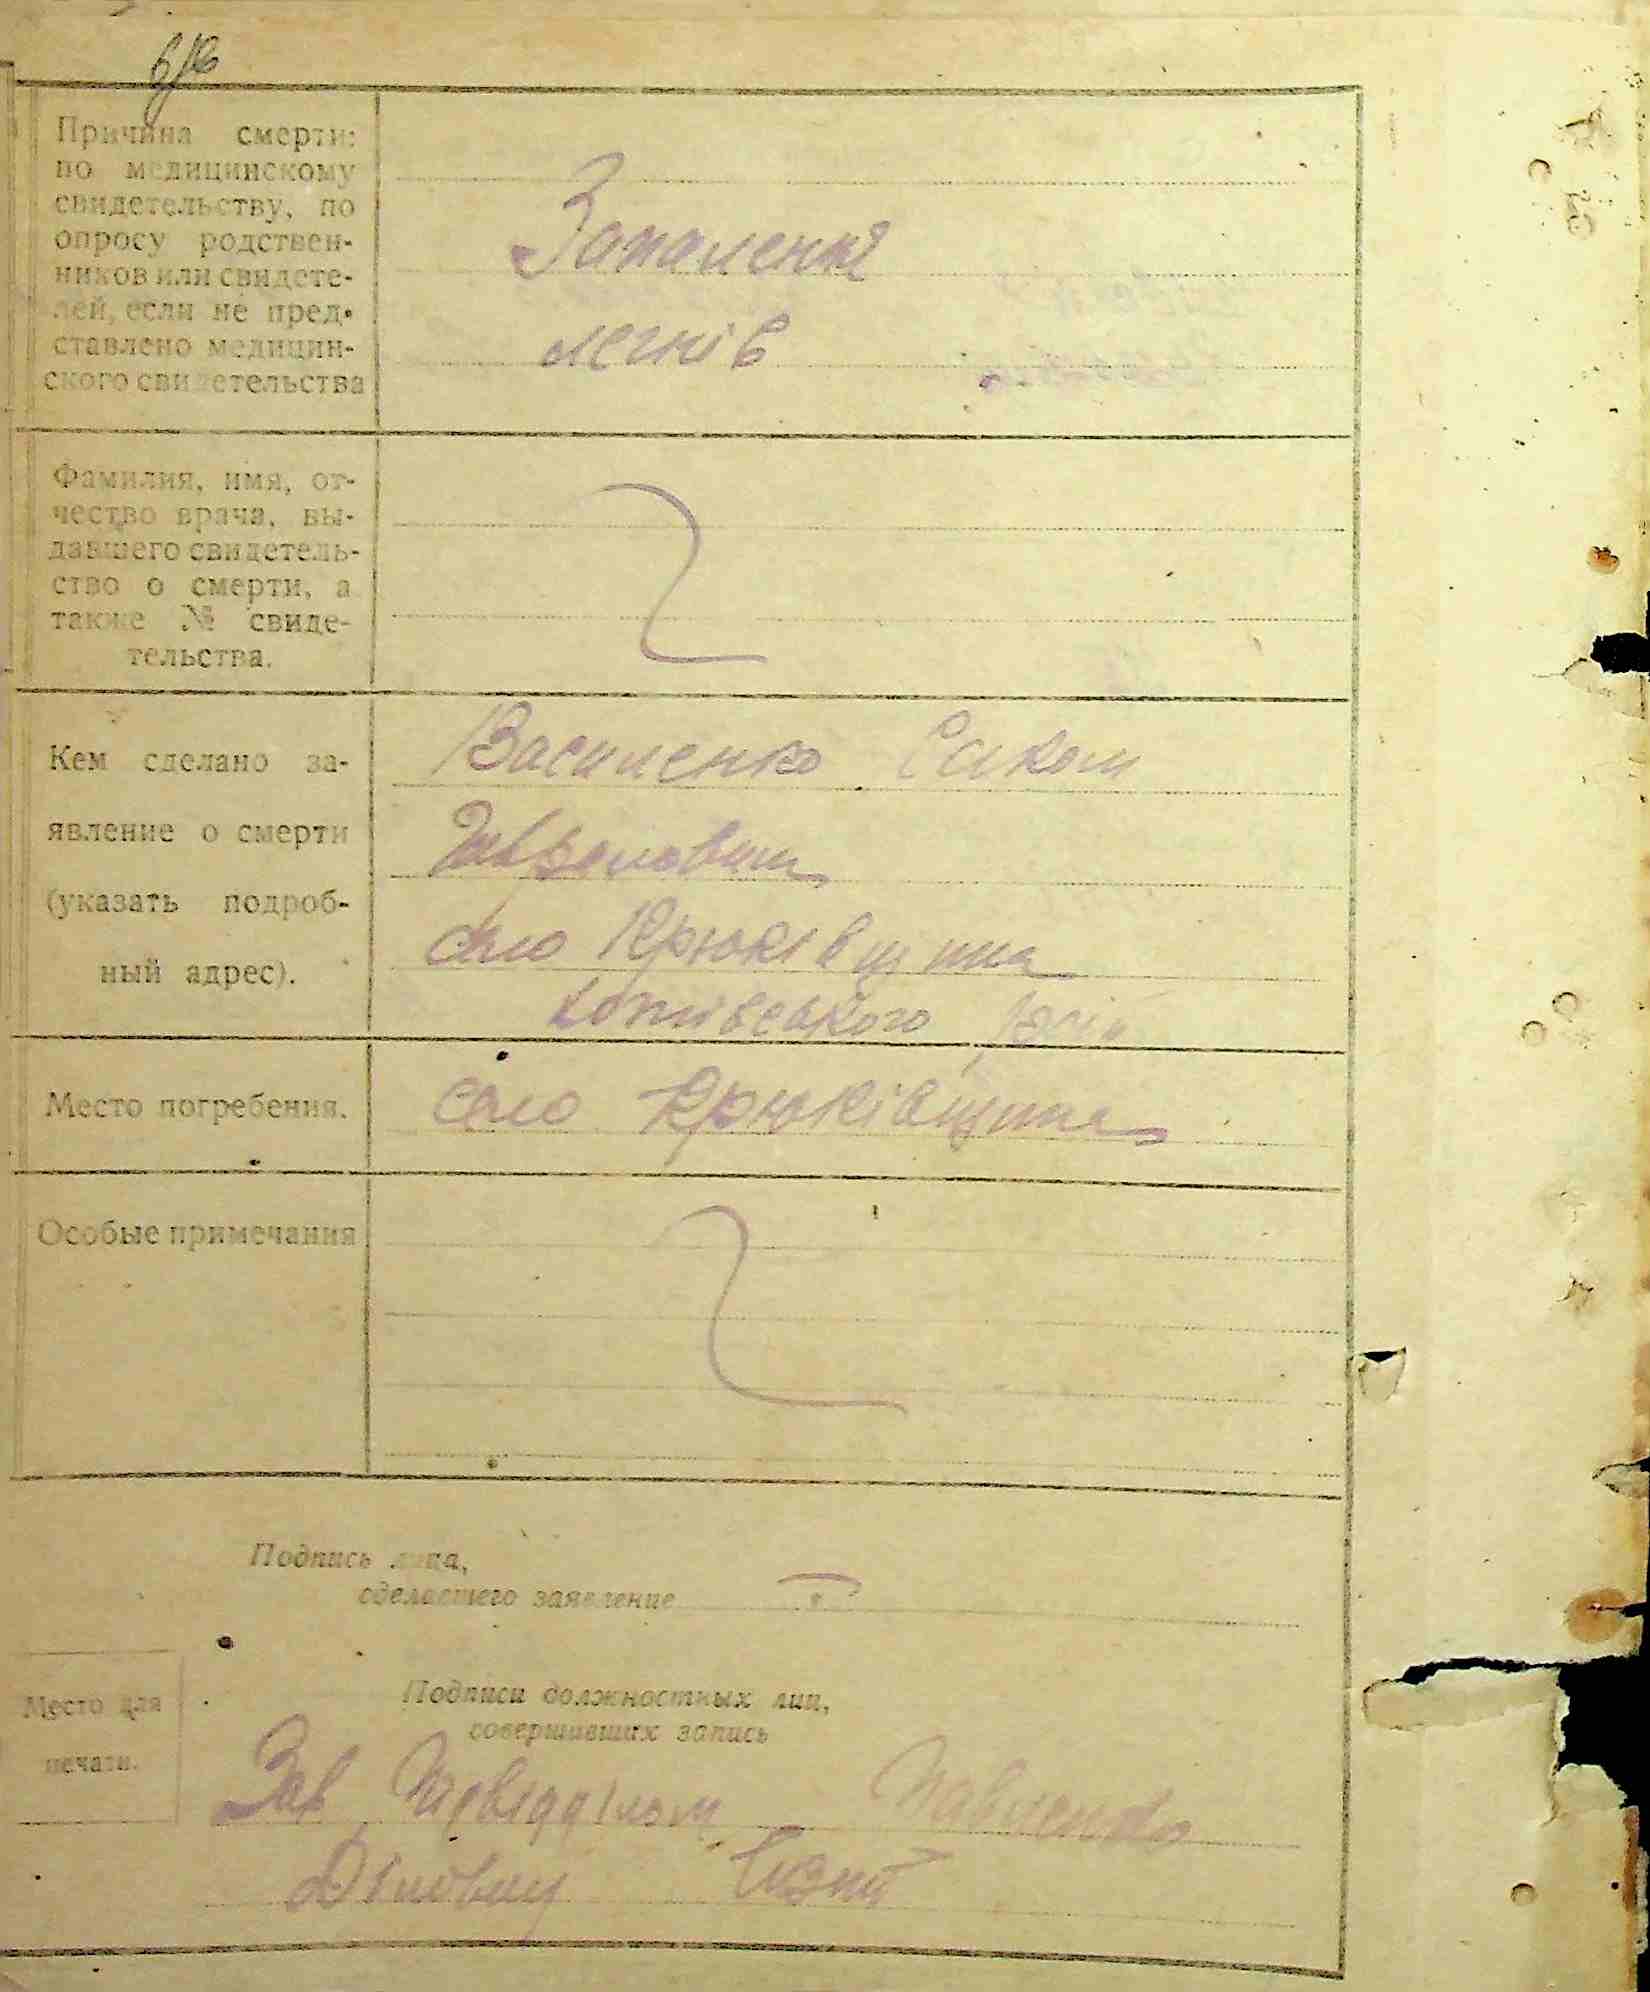 Причина смерти:
по медицинскому
свидетельству, по
опросу родствен-
ников или свидете-
лей, если не пред-
ставлено медицин-
ского свидетельства
Запалення
легнів
Фамилия, имя, от-
чество врача, вы-
давшего свидетель-
ство о смерти, а
также № свиде-
тельства.
Кем сделано за-
явление о смерти
(указать подроб-
ный адрес).
Василенко
село Крюківщина
Место погребения.
село Крюківщина
Особые примечания
Подпись лица,
сделавшего заявление
Место для
печати.
Подписи должностных лиц,
совершивших запись
Зав Павленко
Діловод